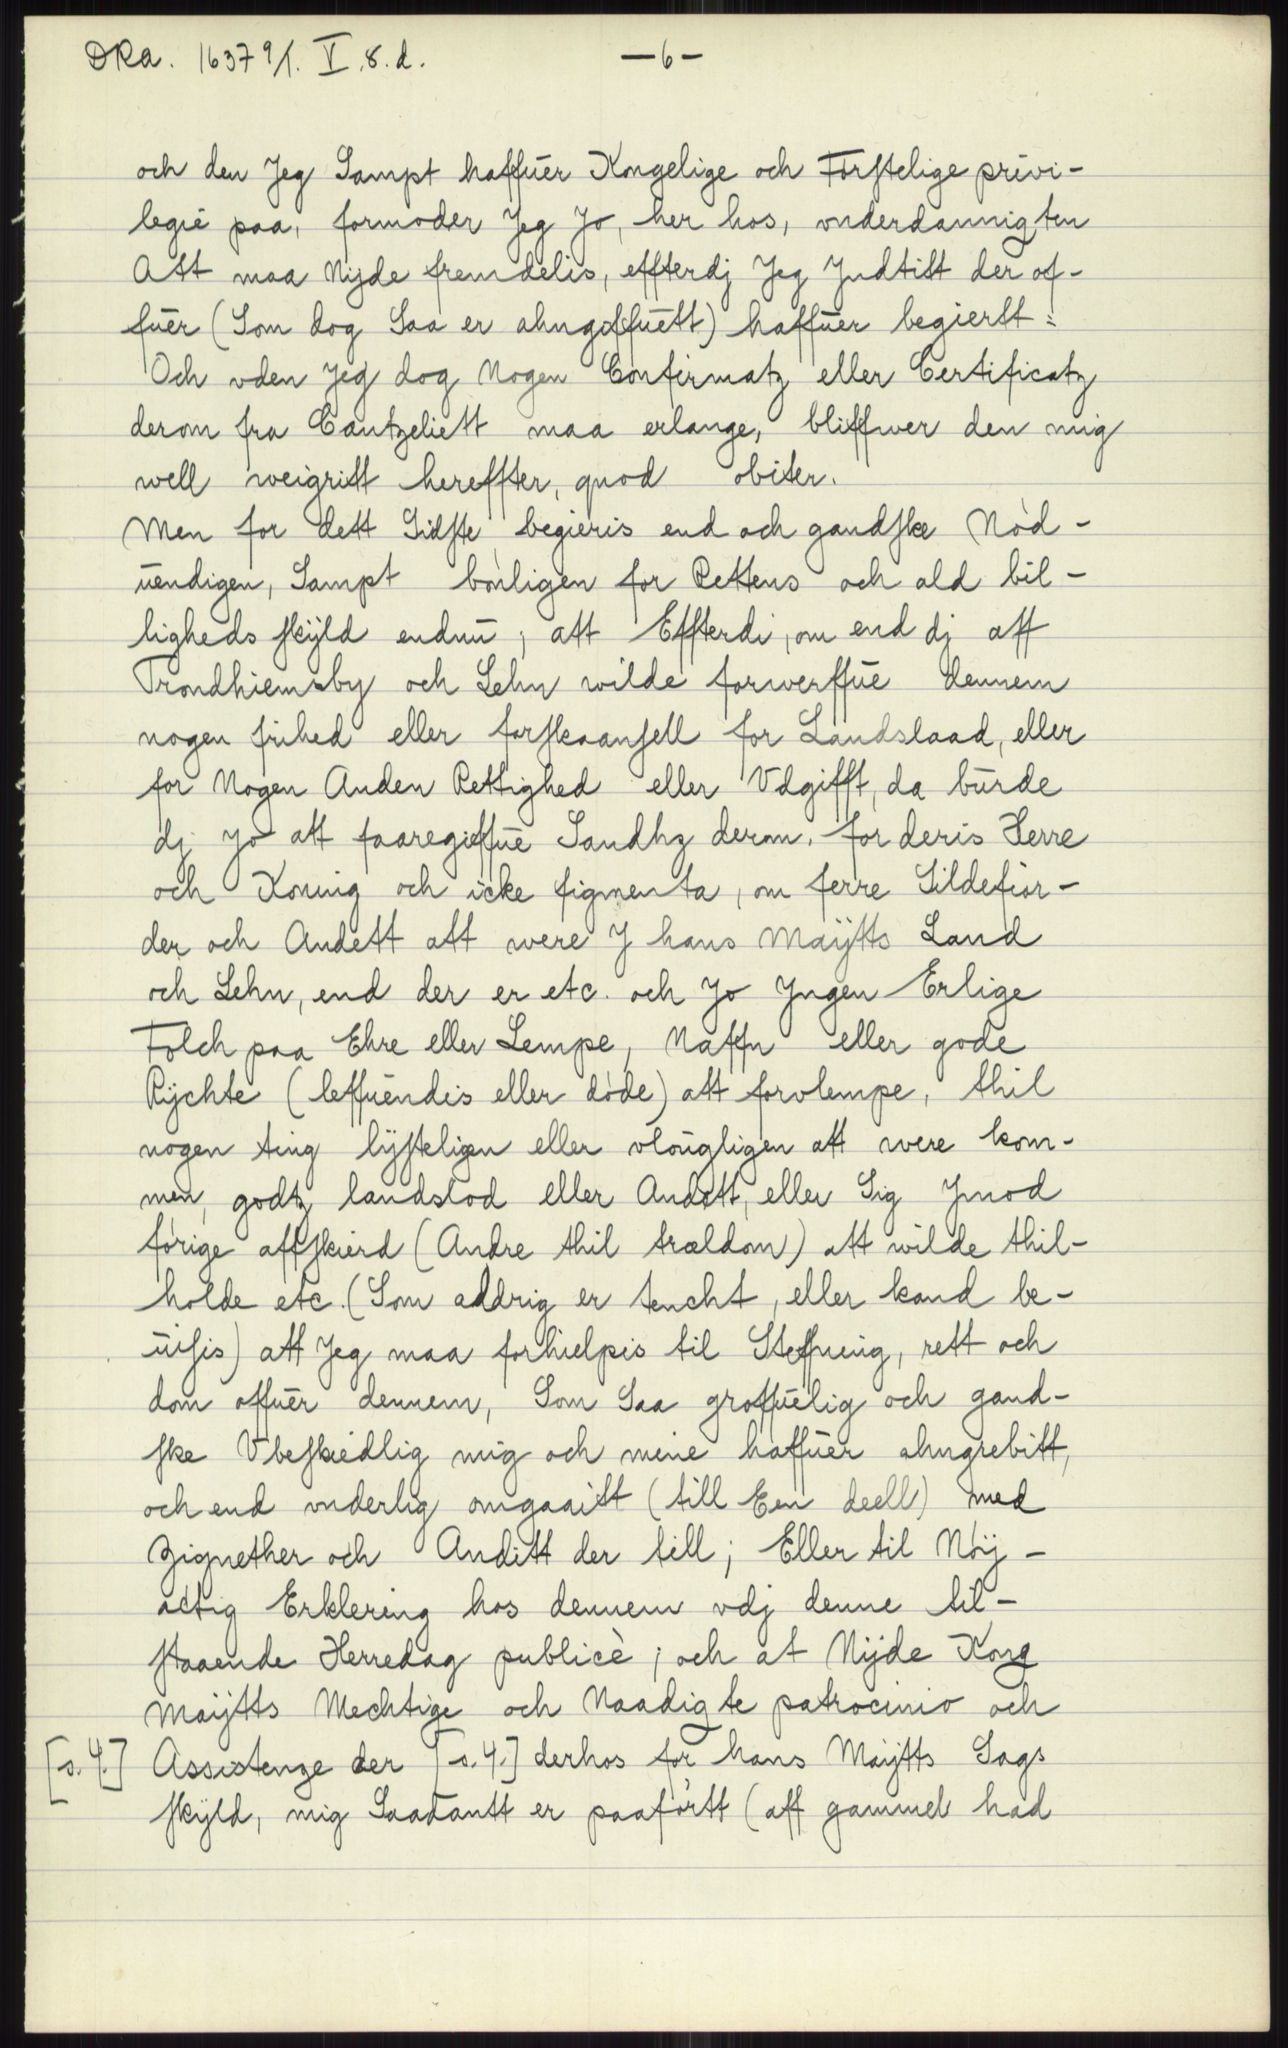 DRa. 1637 9/1. V. 8. d. —6—
och den Jeg Sampt haffuer Kongelige och Førstelige privi-
legie paa, formoder Jeg Jo, her hos, vnderdannigten
Att maa Nijde fremdelis, effterdj Jeg Jndtitt der of-
fuer (Som dog Saa er ahngiffuett) haffuer begierst:
Och vden Jeg dog Nogen Confirmatz eller Certificatz
derom fra Cantzeliett maa erlange, bliffwer den mig
well weigritt hereffter, quod obiter.
Men for dett Sidste begieris end och gandske Nød-
uendigen, Sampt bønligen for Rettens och ald bil-
ligheds skyld endnu, att Effterdi, om end dj aff
Trondhiemsby och Lehn wilde forwerffue dennem
nogen frihed eller forskaansell for Landslaad, eller
for Nogen Anden Rettighed eller Vdgifft, da burde
dj jo att faaregiffue Sandhz derom, for deris Herre
och Koning och icke figmenta, om ferre Sildefiør-
der och Andett att were J hans Maÿtts Land
och Lehn, end der er etc. och Jo Jngen Erlige
Folch paa Ehre eller Lempe, Naffn eller gode
Rÿchte (leffuendis eller døde) att forvlempe, thil
nogen ting lÿsteligen eller vlougligen att were kom-
men, godtz landslod eller Andett, eller Sig Jmod
førige affskierd (Andre thil trældom) att wilde thil-
holde etc. (Som aldrig er tencht, eller kand be-
uisis) att Jeg maa forhielpis til Steffning, rett och
dom offuer dennem, Som Saa groffuelig och gand-
ske Vbeskiedlig mig och mine haffuer ahngrebitt,
och end vnderlig omgaaitt (till Een deell) med
Zignether och Anditt der till; Eller til Nøÿ-
actig Erklering hos dennem vdj denne til-
staaende Herredag publicè; och at Nijde Kong
Maÿtts Mechtige och Naadigte patrocinio och
[s. 4.] Assistenze der [s. 4.] derhos for hans Maÿtts Sags
skÿld, mig Saadantt er paaførtt (aff gammel had